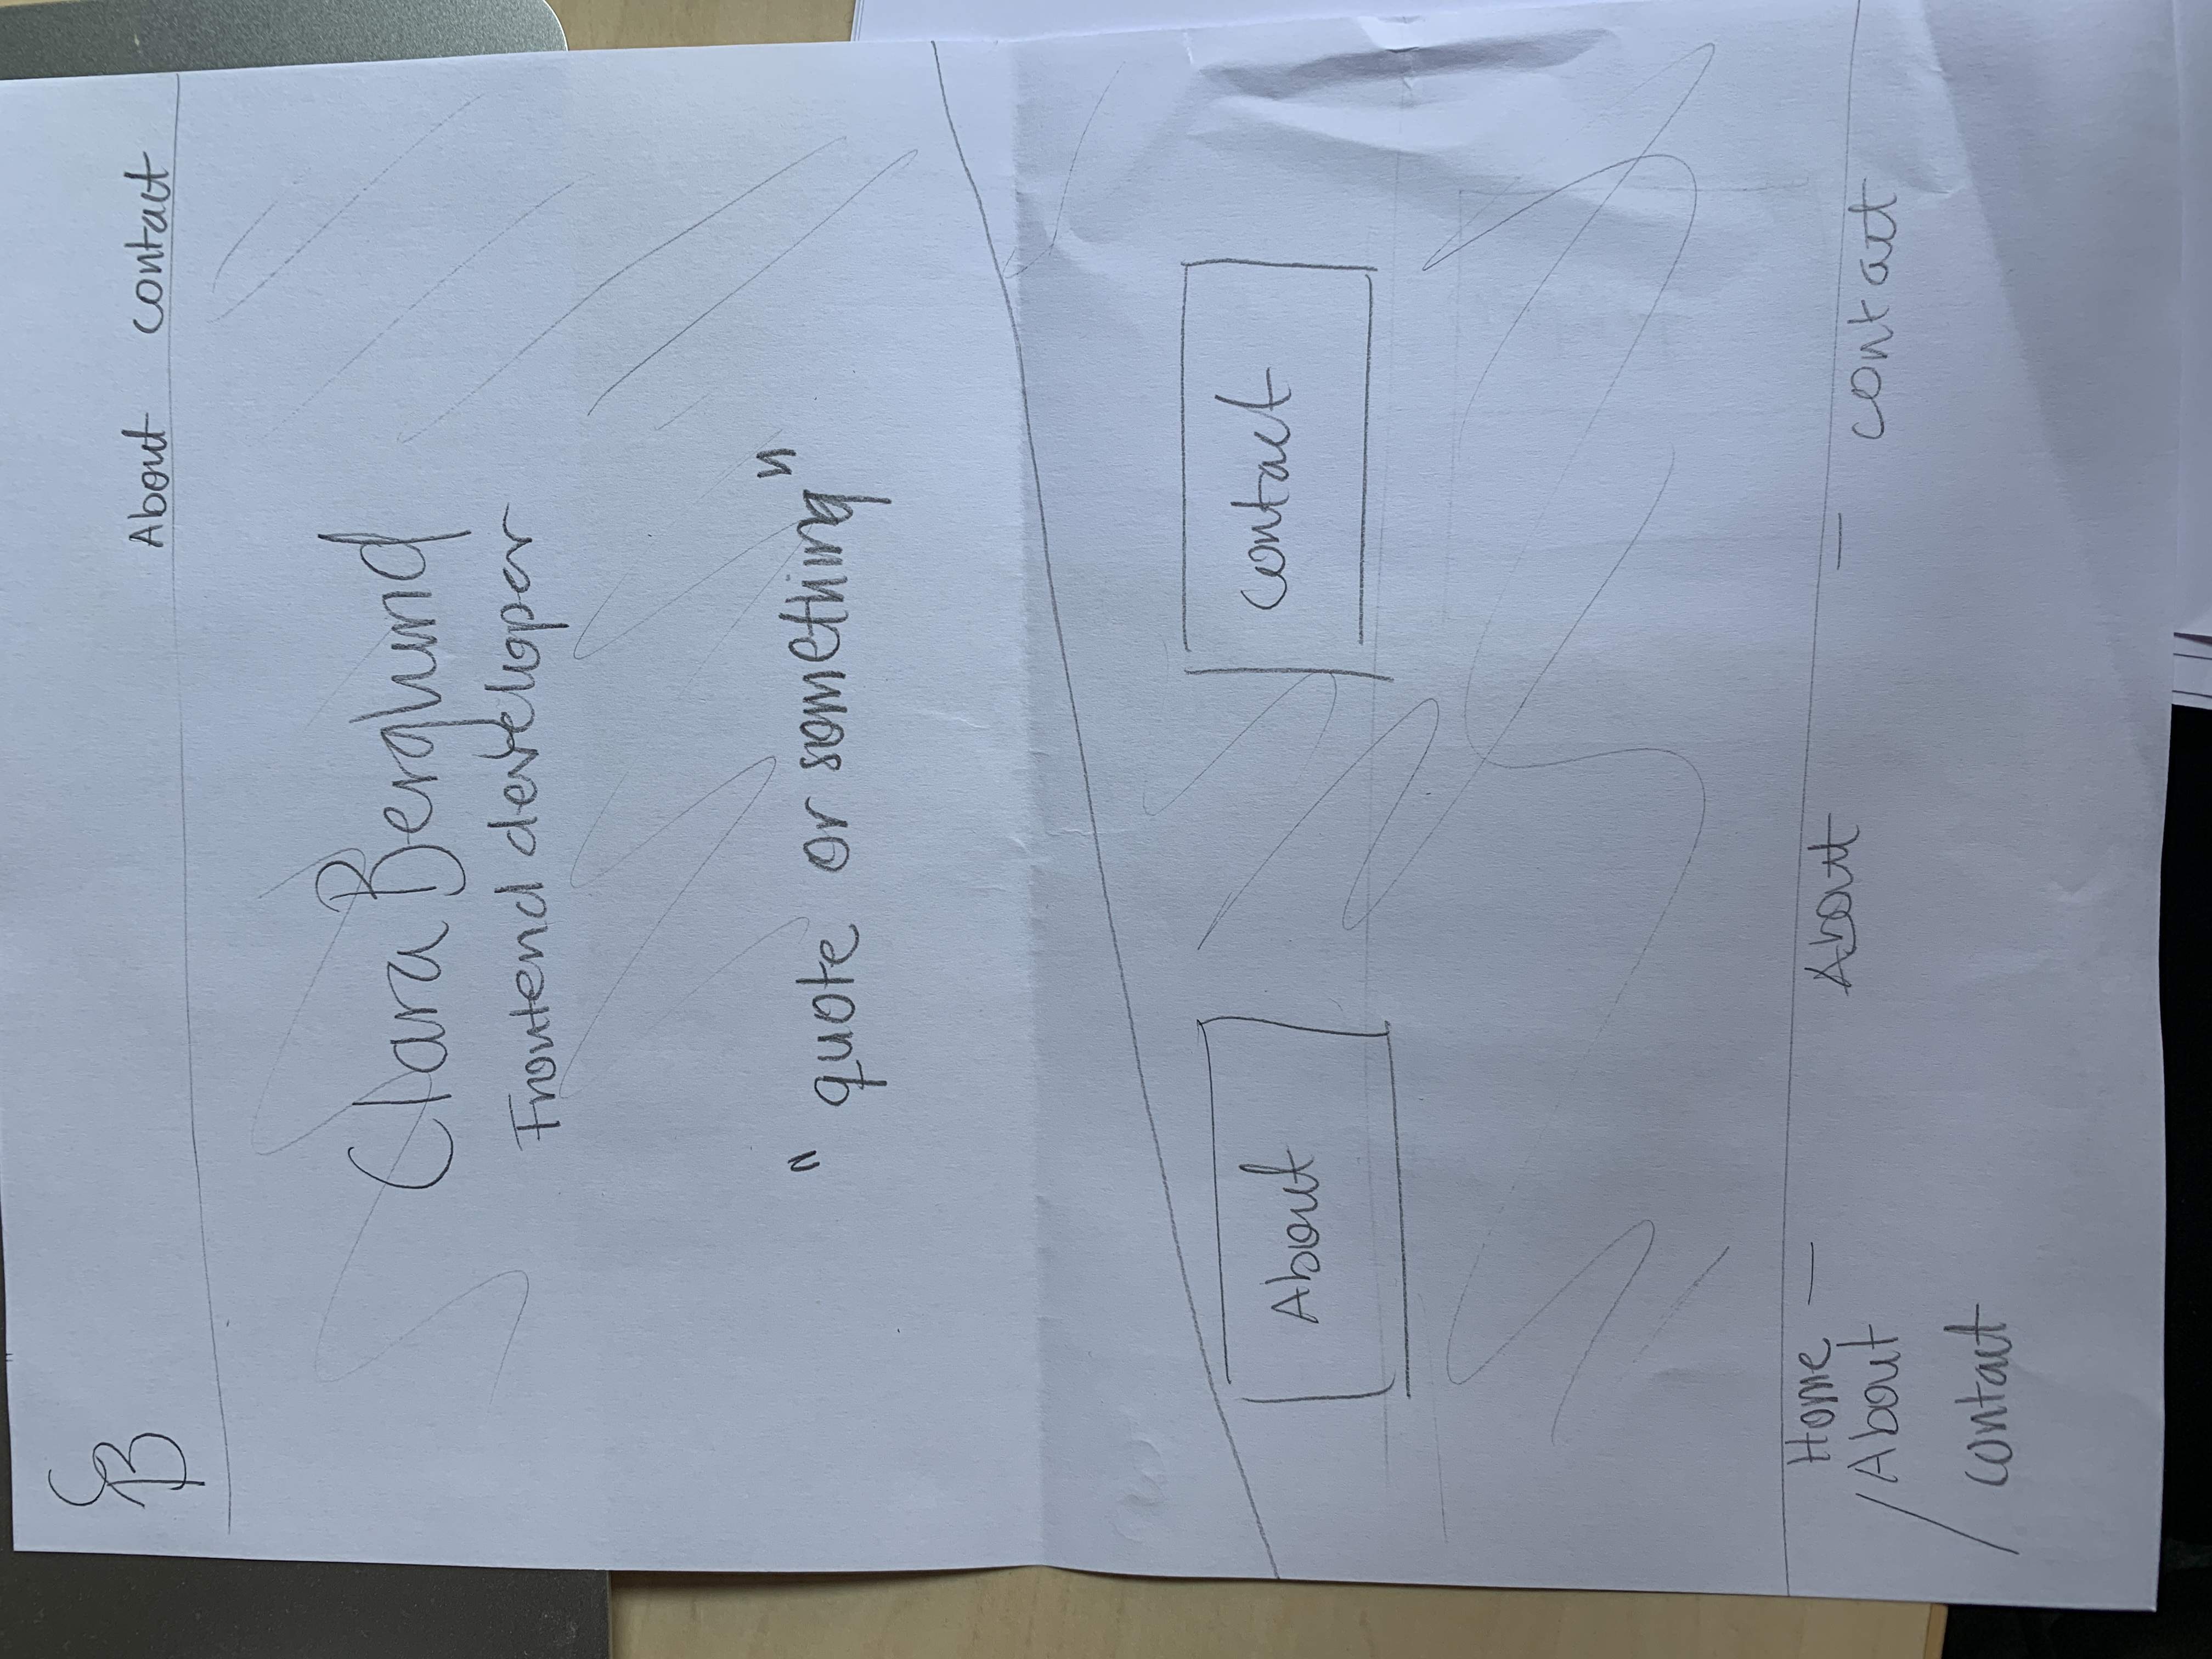 CB
About contact
Clara Berglund
Frontend developer
" quote or something "
About
contact
Home — About — contact
/ About
contact